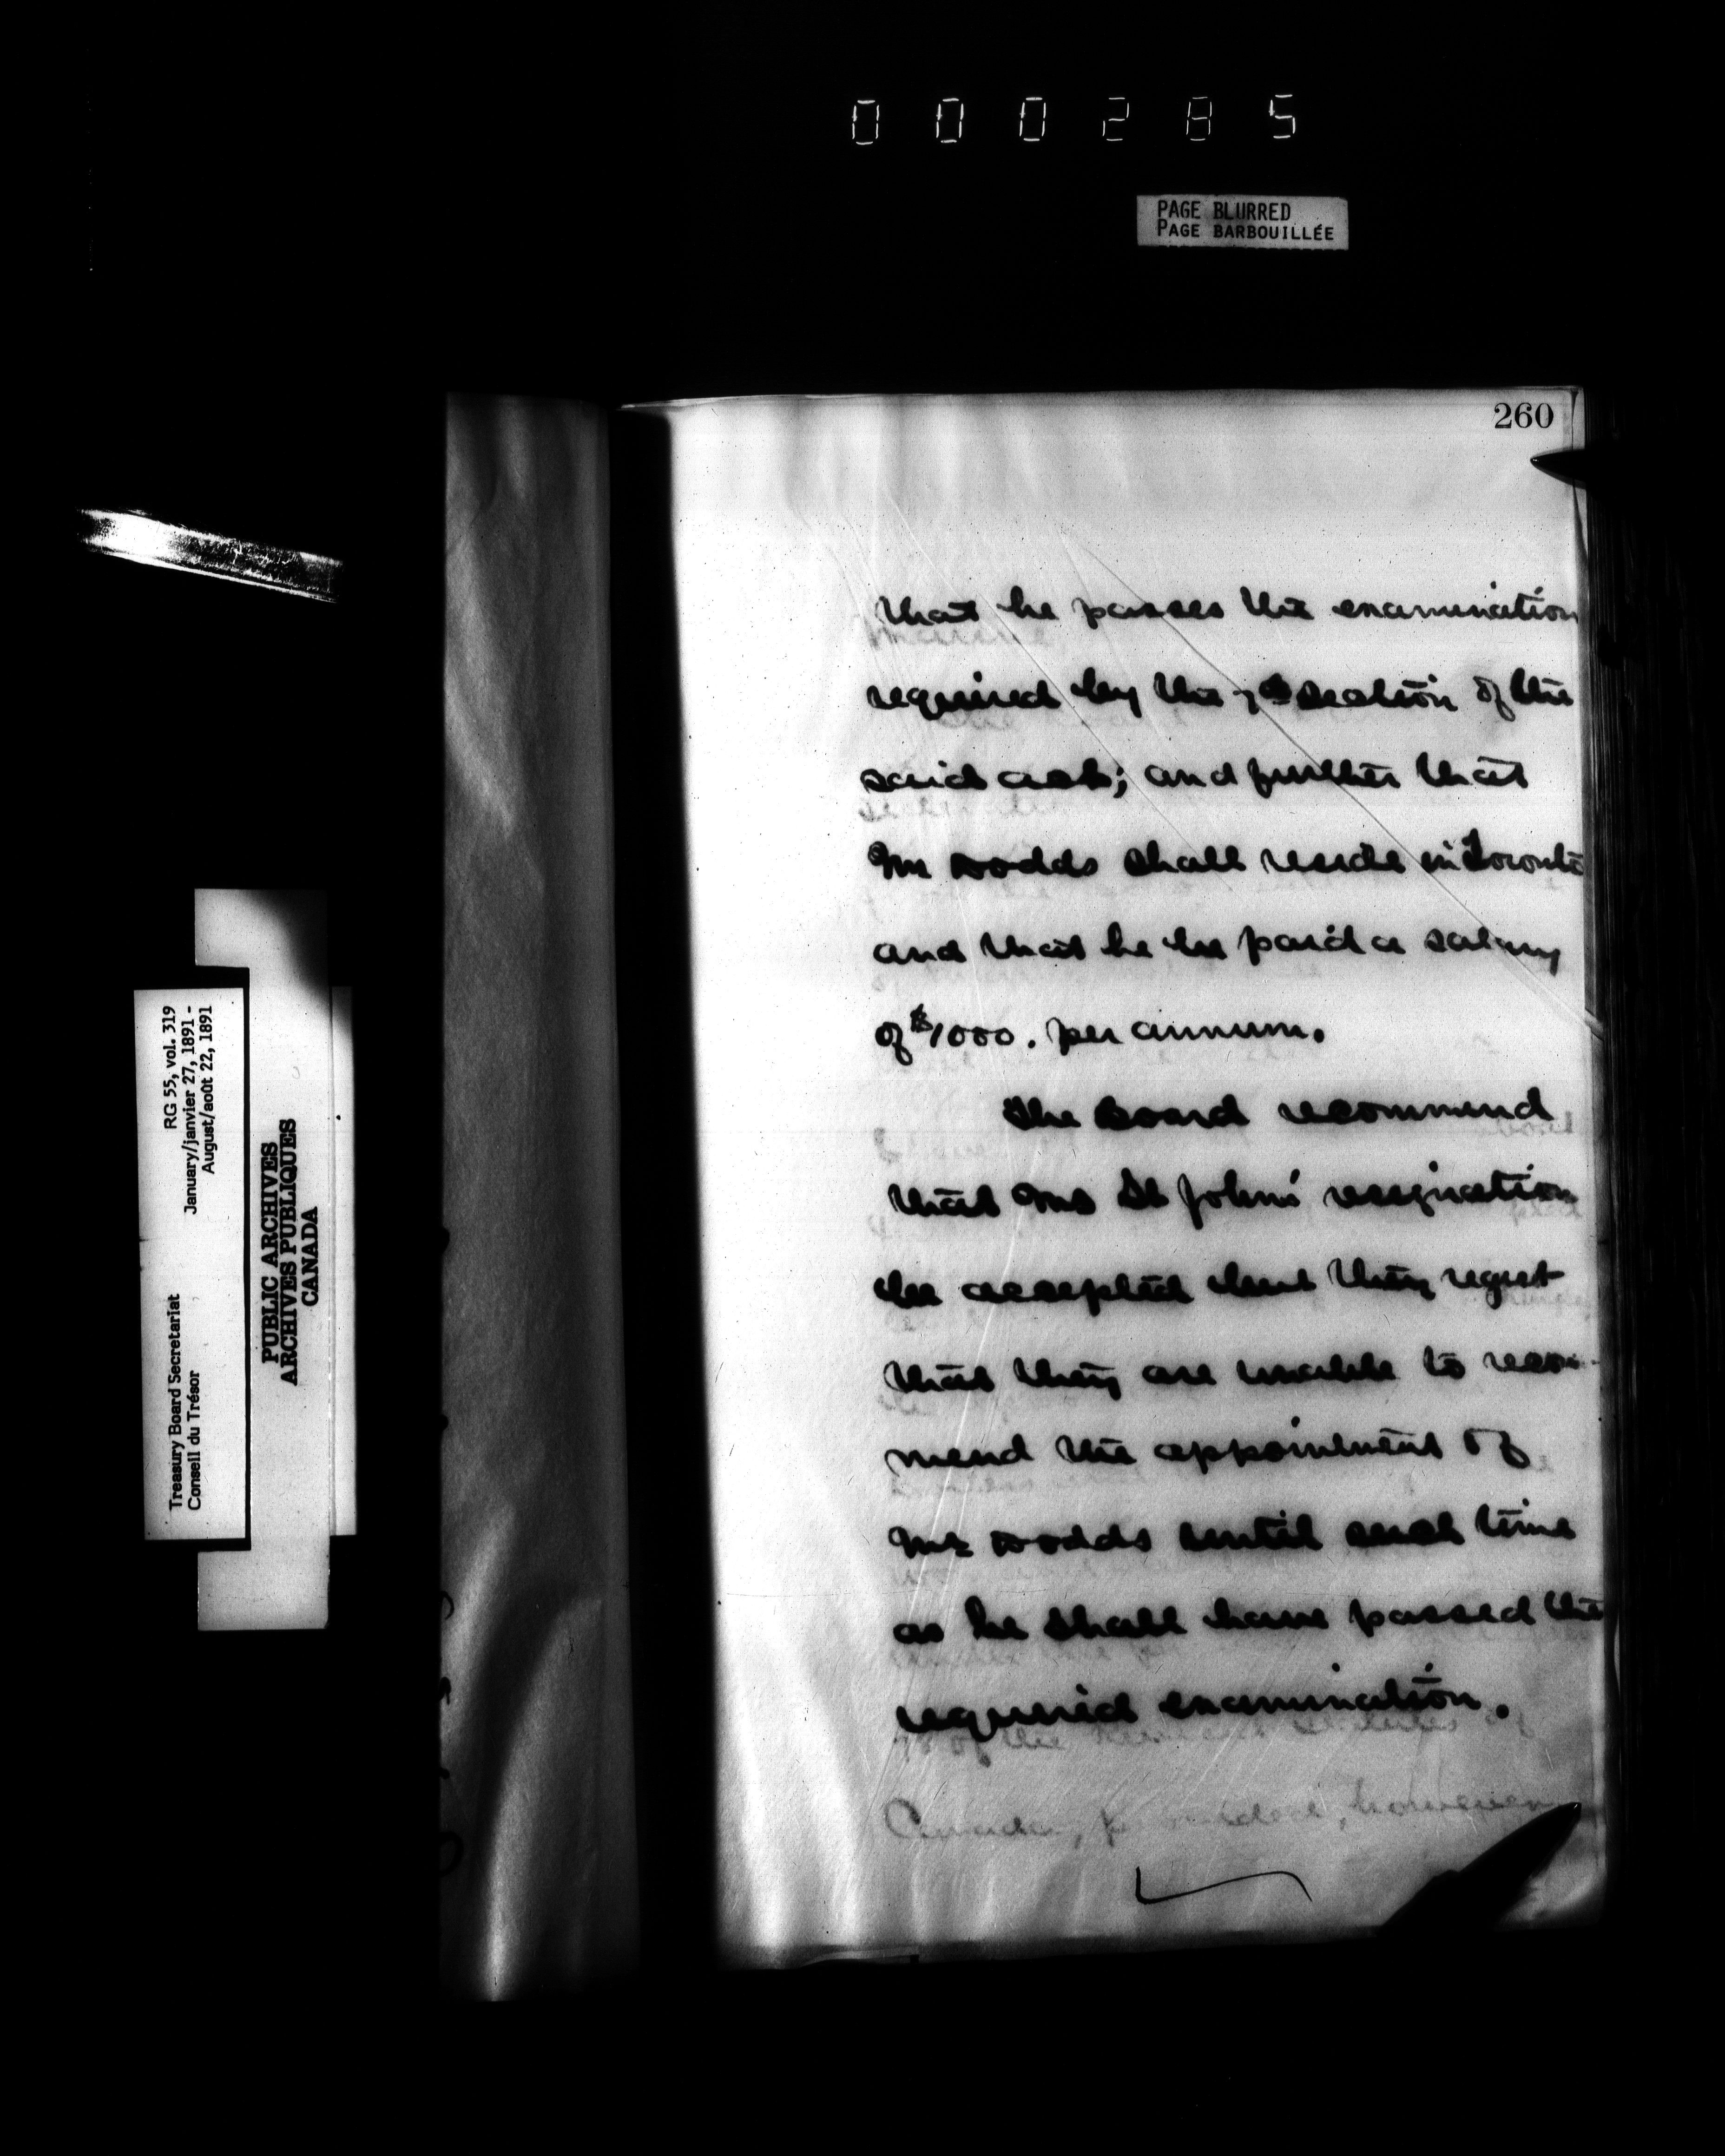 000285
PAGE BLURRED
PAGE BARBOUILLÉE
260
that he passes the examination
required by the 7th section of the
said act; and further that
Mr Dodds shall reside in Toronto
and that he be paid a salary
of $1000. per annum.
The Board recommend
that Mr St John's resignation
be accepted but they regret
that they are unable to recom-
mend the appointment of
Mr Dodds until such time
as he shall have passed the
required examination.
of the
Canada, provided, however
RG 55, vol. 319
January/janvier 27, 1891 -
August/août 22, 1891
Treasury Board Secretariat
Conseil du Trésor
PUBLIC ARCHIVES
ARCHIVES PUBLIQUES
CANADA